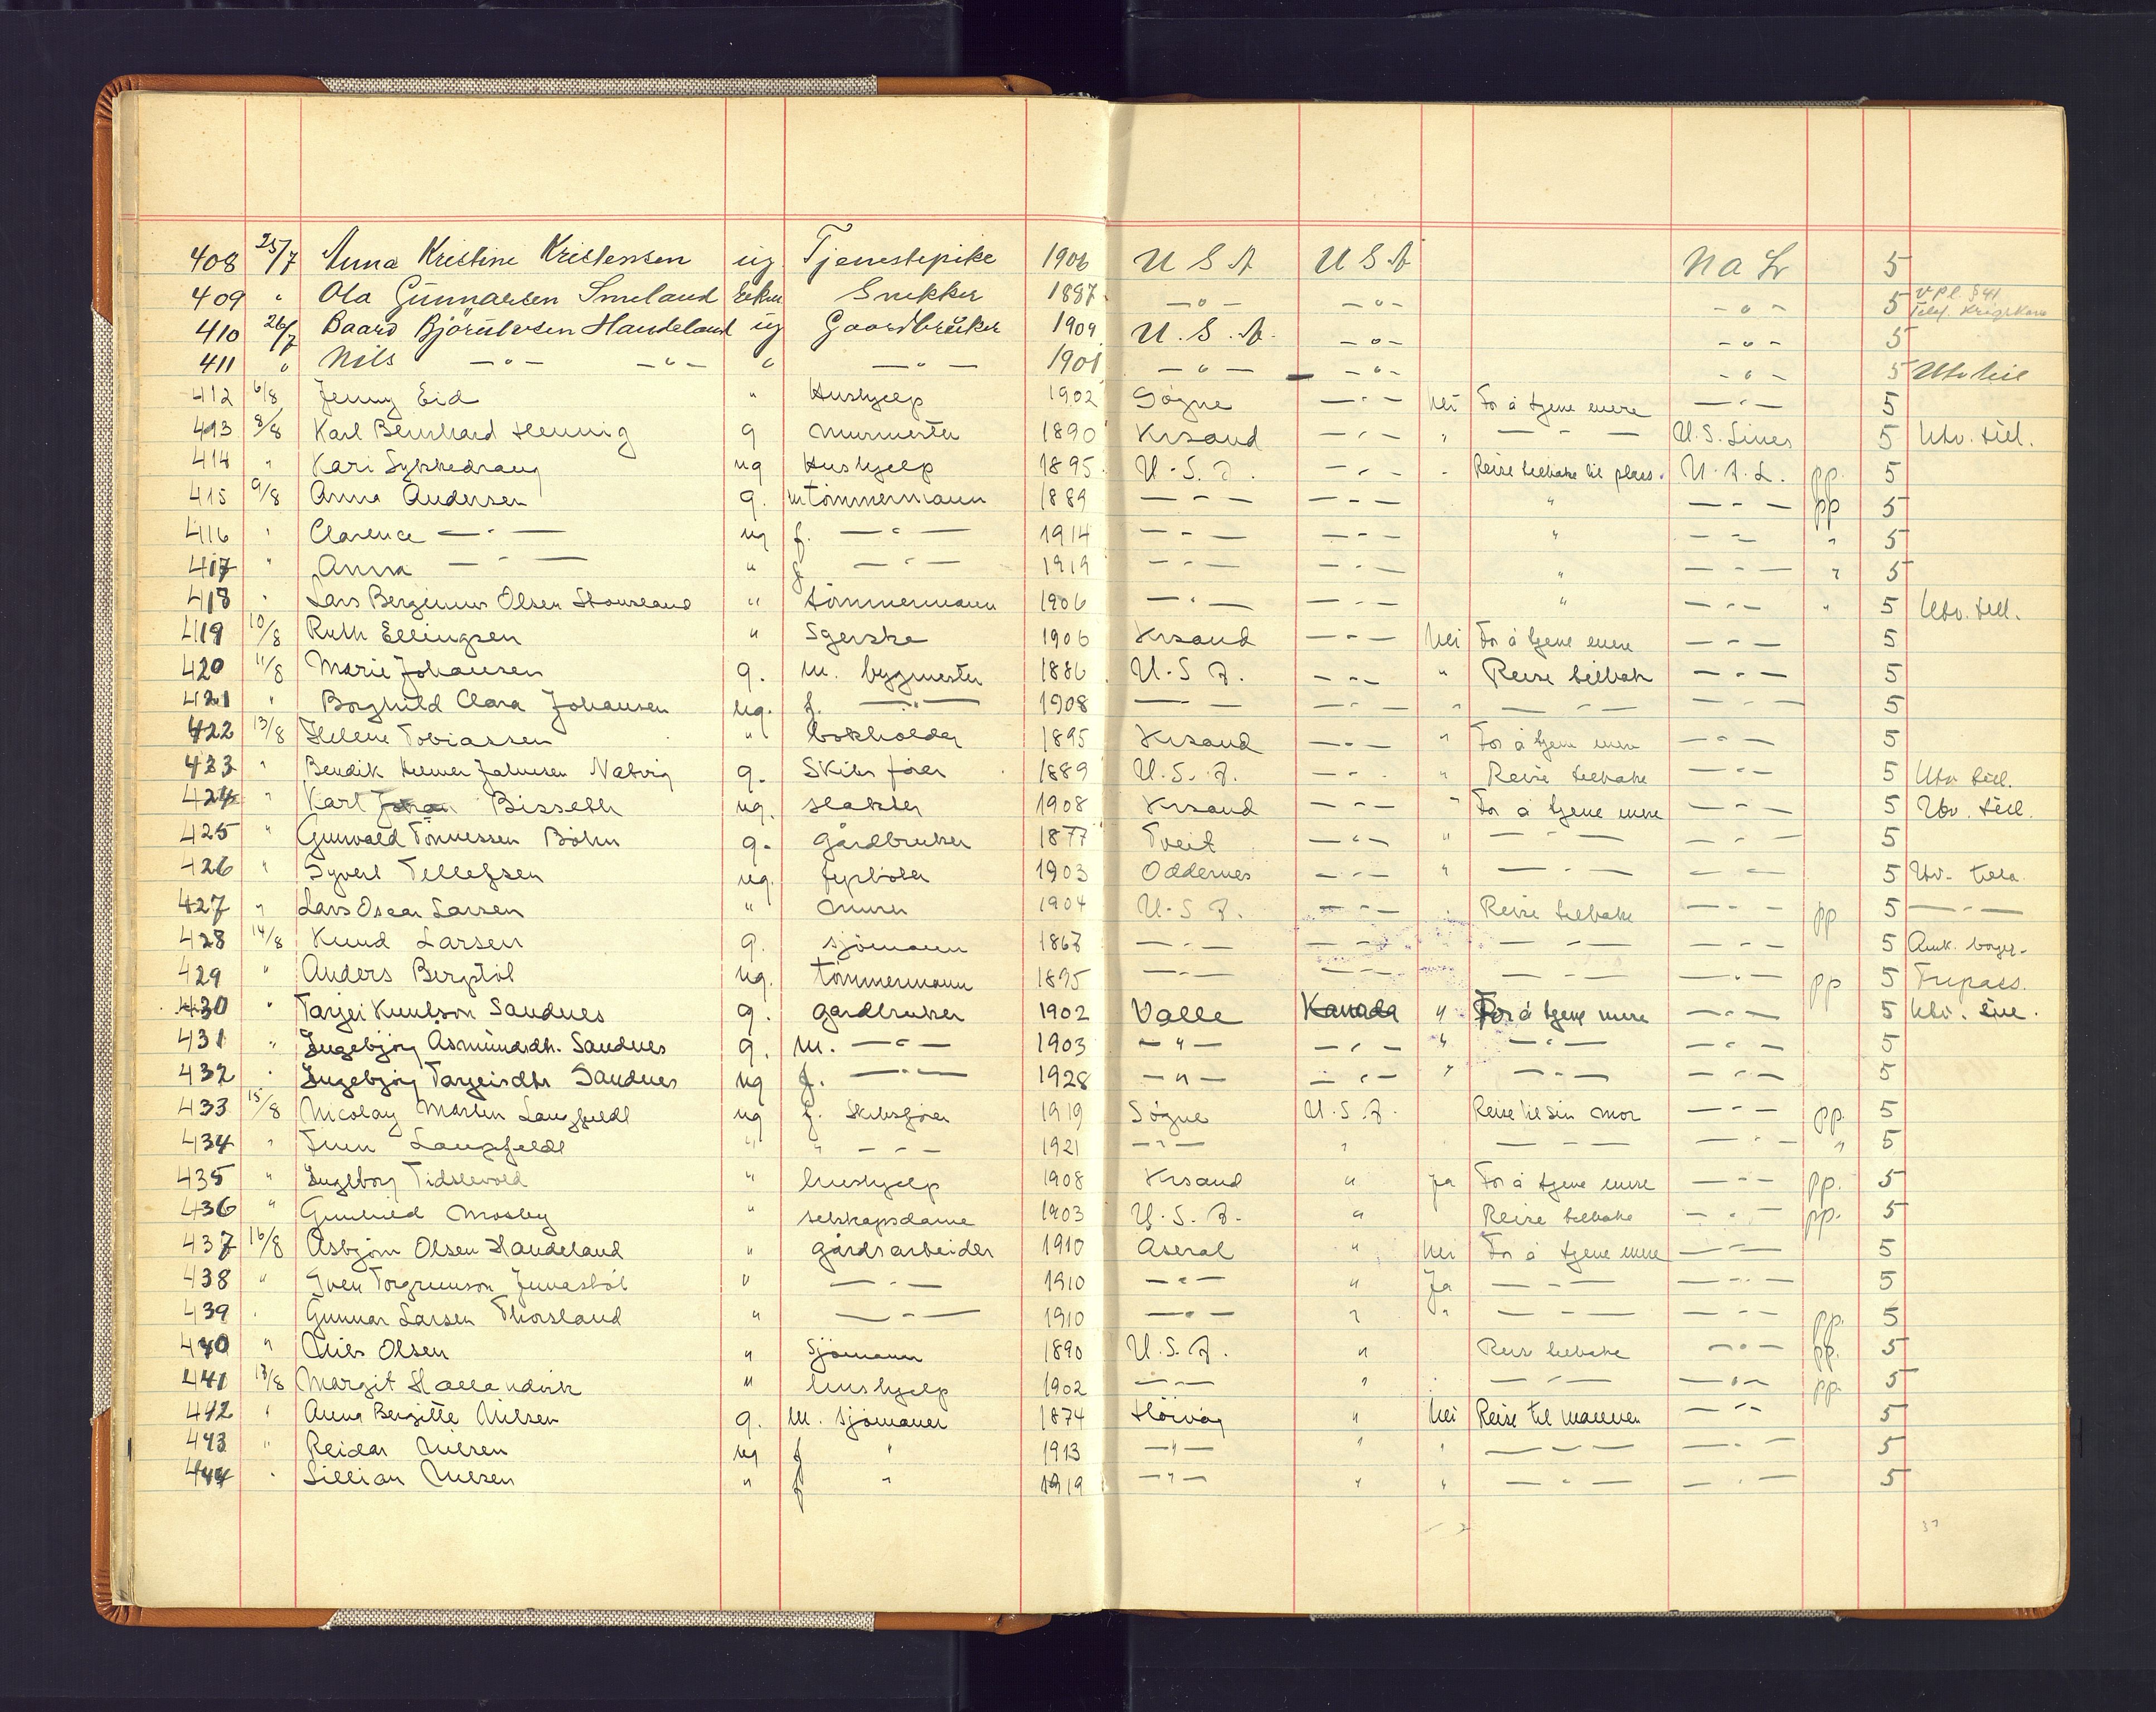 408 25/7 Anna Kristine Kristensen ug Tjenestepike 1906 U S A U S A N a L 5
409 " Ola Gunnarsen Smeland Enkem Snekker 1897 — " — — " — — " — 5 V pl. § 41
410 26/7 Baard Bjørulvsen Haudeland ug Gaardbruker 1909 U. S. A. — " — — " — 5
411 " Nils — " — — " — " — " — 1901 — " — — " — — " — 5 Utv till
412 6/8 Jenny Eid " Hushjelp 1902 Søgne — " — Nei For å tjene mere — " — 5
413 8/8 Karl Bernhard Hennig g Murmester 1890 Krsand — " — " — — — U. S. Lines 5 Utv. till.
414 " Kari Sykkedraug ug Hushjelp 1895 U. S. A. — " — " Reise tilbake til plass. N. A. L. pp. 5
415 9/8 Anna Andersen g. m tømmermann 1889 — " — — " — " — " — pp 5
416 " Clarence — " — ug f. — " — 1914 — " — — " — " — " — " 5
417 " Anna — " — " f — " — 1919 — " — — " — " — " — " 5
418 " Lars Berginius Olsen Skoursland " tømmermann 1906 — " — " — " — " 5 Utv. till.
419 10/8 Ruth Ellingsen " Syerske 1906 Krsand — " — Nei For å tjene mere — " — 5
420 11/8 Marie Johansen g. m. bygmester 1886 U. S. A. — " — " Reise tilbake — " — 5
421 " Borghild Clara Johansen ug. f. — " — 1908 — " — — " — " — " — — " — 5
422 13/8 Helene Tobiassen " bokholder 1895 Krsand — " — " For å tjene mere — " — 5
423 " Bendik Helmer Johnsen Natvig g. Skibsfører 1889 U. S. A. — " — " Reise tilbake — " — 5 Utv till.
424 " Karl Bisseth ug. slakter 1908 Krsand — " — " For å tjene mere — " — 5 Utv. till.
425 " Gunvald Tønnessen Bøhn g. gårdbruker 1877 Tveit — " — " — " — — " — 5
426 " Syvert Tellefsen ug. fyrbøter 1903 Oddernes — " — " — " — — " — 5 Utv. till.
427 " Lars Oscar Larsen " murer 1904 U. S. A. — " — " Reise tilbake — " — pp 5 — " —
428 14/8 Knud Larsen g. sjømann 1867 — " — — " — — " — — " — 5 Amk. borger.
429 " Anders Bergstøl ug. tømmermann 1895 — " — — " — — " — — " — pp 5 Fripass.
430 " Tarjei Knutson Sandnes g. gårdbruker 1902 Valle Kanada " For å tjene mere — " — 5 Utv. till.
431 " Ingebjørg Åsmundsdtr. Sandnes g. m. — " — 1903 — " — — " — " — " — — " — 5
432 " Ingebjørg Tarjeisdtr Sandnes ug f. — " — 1928 — " — — " — " — " — — " — 5
433 15/8 Nicolay Martin Langfeldt ug f. Skibsfører 1919 Søgne U. S. A. Reise til sin mor — " — pp. 5
434 " Finn Langfeldt " " — " — 1921 — " — " — " — — " — " 5
435 " Ingeborg Tidslevold " hushjelp 1908 Krsand " Ja For å tjene mere — " — pp. 5
436 " Gunhild Mosby " selskapsdame 1903 U. S. A. " Reise tilbake — " — pp. 5
437 16/8 Asbjørn Olsen Haudeland " gårdsarbeider 1910 Åseral " Nei For å tjene mere — " — 5
438 " Sven Torgrimson Junestøl " — " — 1910 — " — " Ja — " — — " — 5
439 " Gunnar Larsen Thorsland " — " — 1910 — " — " " — " — — " — pp. 5
440 " Nils Olsen " Sjømann 1890 U. S. A. " Reise tilbake — " — pp. 5
441 17/8 Margit Hallandvik " hushjelp 1902 — " — " — " — — " — pp. 5
442 " Anna Bergitte Nilsen g. m. sjømann 1874 Høvåg " Nei Reise til mannen — " — 5
443 " Reidar Nilsen ug f " 1913 — " — " " — " — — " — 5
444 " Lillian Nilsen " f " 1919 — " — " " — " — — " — 5